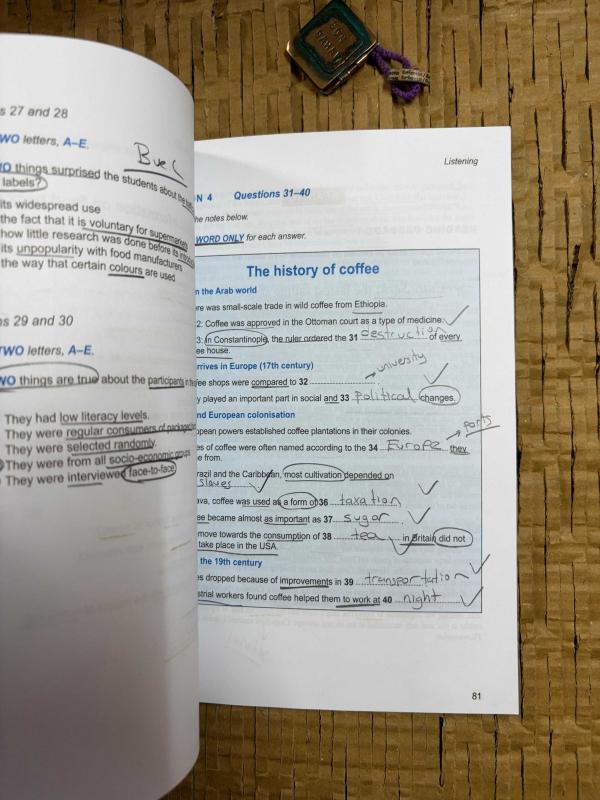 s 27 and 28
WO letters, A–E.
B и C
O things surprised the students about the
labels?
its widespread use
the fact that it is voluntary for supermarkets
how little research was done before its
its unpopularity with food manufacturers
the way that certain colours are used
ns 29 and 30
TWO letters, A–E.
WO things are true about the participants in
They had low literacy levels.
They were regular consumers of packaged
They were selected randomly.
They were from all socio-economic groups
They were interviewed face-to-face.
Listening
N 4 Questions 31–40
he notes below.
WORD ONLY for each answer.
The history of coffee
n the Arab world
ere was small-scale trade in wild coffee from Ethiopia.
2: Coffee was approved in the Ottoman court as a type of medicine.
3: In Constantinople, the ruler ordered the 31 destruction of every
ee house.
rrives in Europe (17th century)
university
ee shops were compared to 32
y played an important part in social and 33 Political changes.
nd European colonisation
ports
opean powers established coffee plantations in their colonies.
es of coffee were often named according to the 34 Europe they
e from.
razil and the Caribbean, most cultivation depended on
slaves
ava, coffee was used as a form of 36 taxation
ee became almost as important as 37 sugar
move towards the consumption of 38 tea in Britain did not
take place in the USA.
the 19th century
es dropped because of improvements in 39 transportation
strial workers found coffee helped them to work at 40 night
81